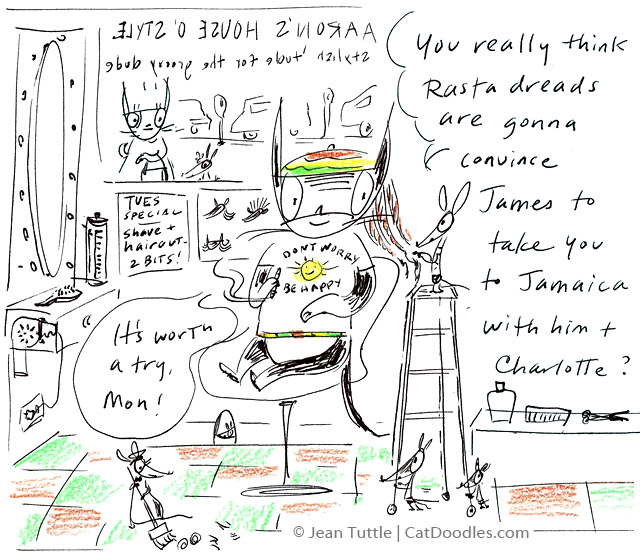 AARON'S HOUSE O' STYLE
stylish 'tude for the groovy dude
You really think
Rasta dreads
are gonna
convince
James to
take you
to Jamaica
with him +
Charlotte?
TUES
SPECIAL
shave +
haircut-
2 BITS!
DONT WORRY
BE HAPPY
It's worth
a try,
Mon!
© Jean Tuttle | CatDoodles.com